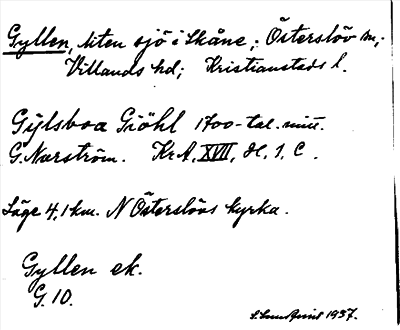 Gyllen, liten sjö i Skåne; Österslöv sn;
Villands hd; Kristianstads l.
Gylsboa Giöhl 1700-tal. mitt.
G. Norström. KrA, XVII, H. 1, C.
Läge 4,1 km. N Österslövs kyrka.
Gyllen ek.
G. 10.
1937.